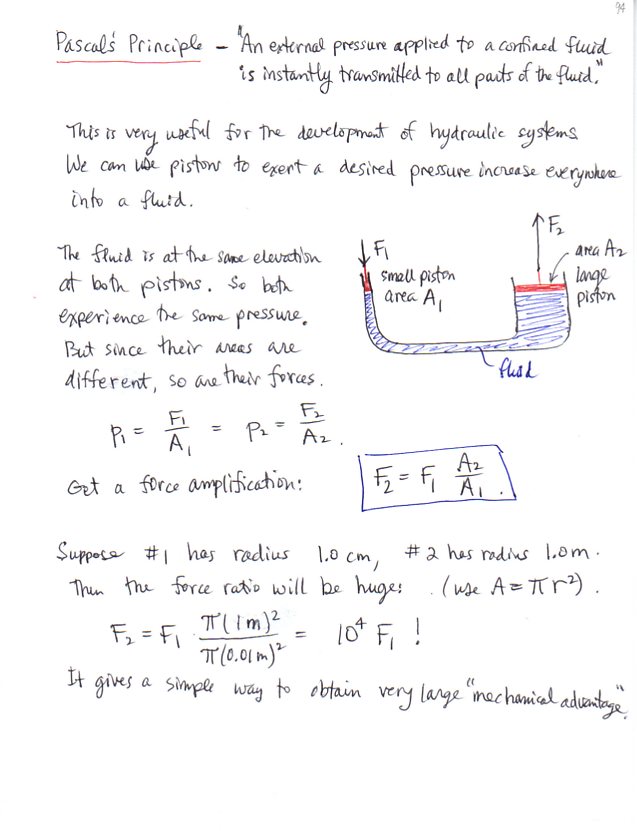 94
Pascal's Principle – "An external pressure applied to a confined fluid
is instantly transmitted to all parts of the fluid."
This is very useful for the development of hydraulic systems
We can use pistons to exert a desired pressure increase everywhere
into a fluid.
The fluid is at the same elevation
at both pistons. So both
experience the same pressure.
But since their areas are
different, so are their forces.
F₁
small piston
area A₁
F₂
area A₂
large
piston
fluid
p₁ = F₁/A₁ = p₂ = F₂/A₂.
Get a force amplification:
F₂ = F₁ A₂/A₁.
Suppose #1 has radius 1.0 cm, #2 has radius 1.0 m.
Then the force ratio will be huge: (use A = πr²).
F₂ = F₁ π(1m)²/π(0.01m)² = 10⁴ F₁ !
It gives a simple way to obtain very large "mechanical advantage".